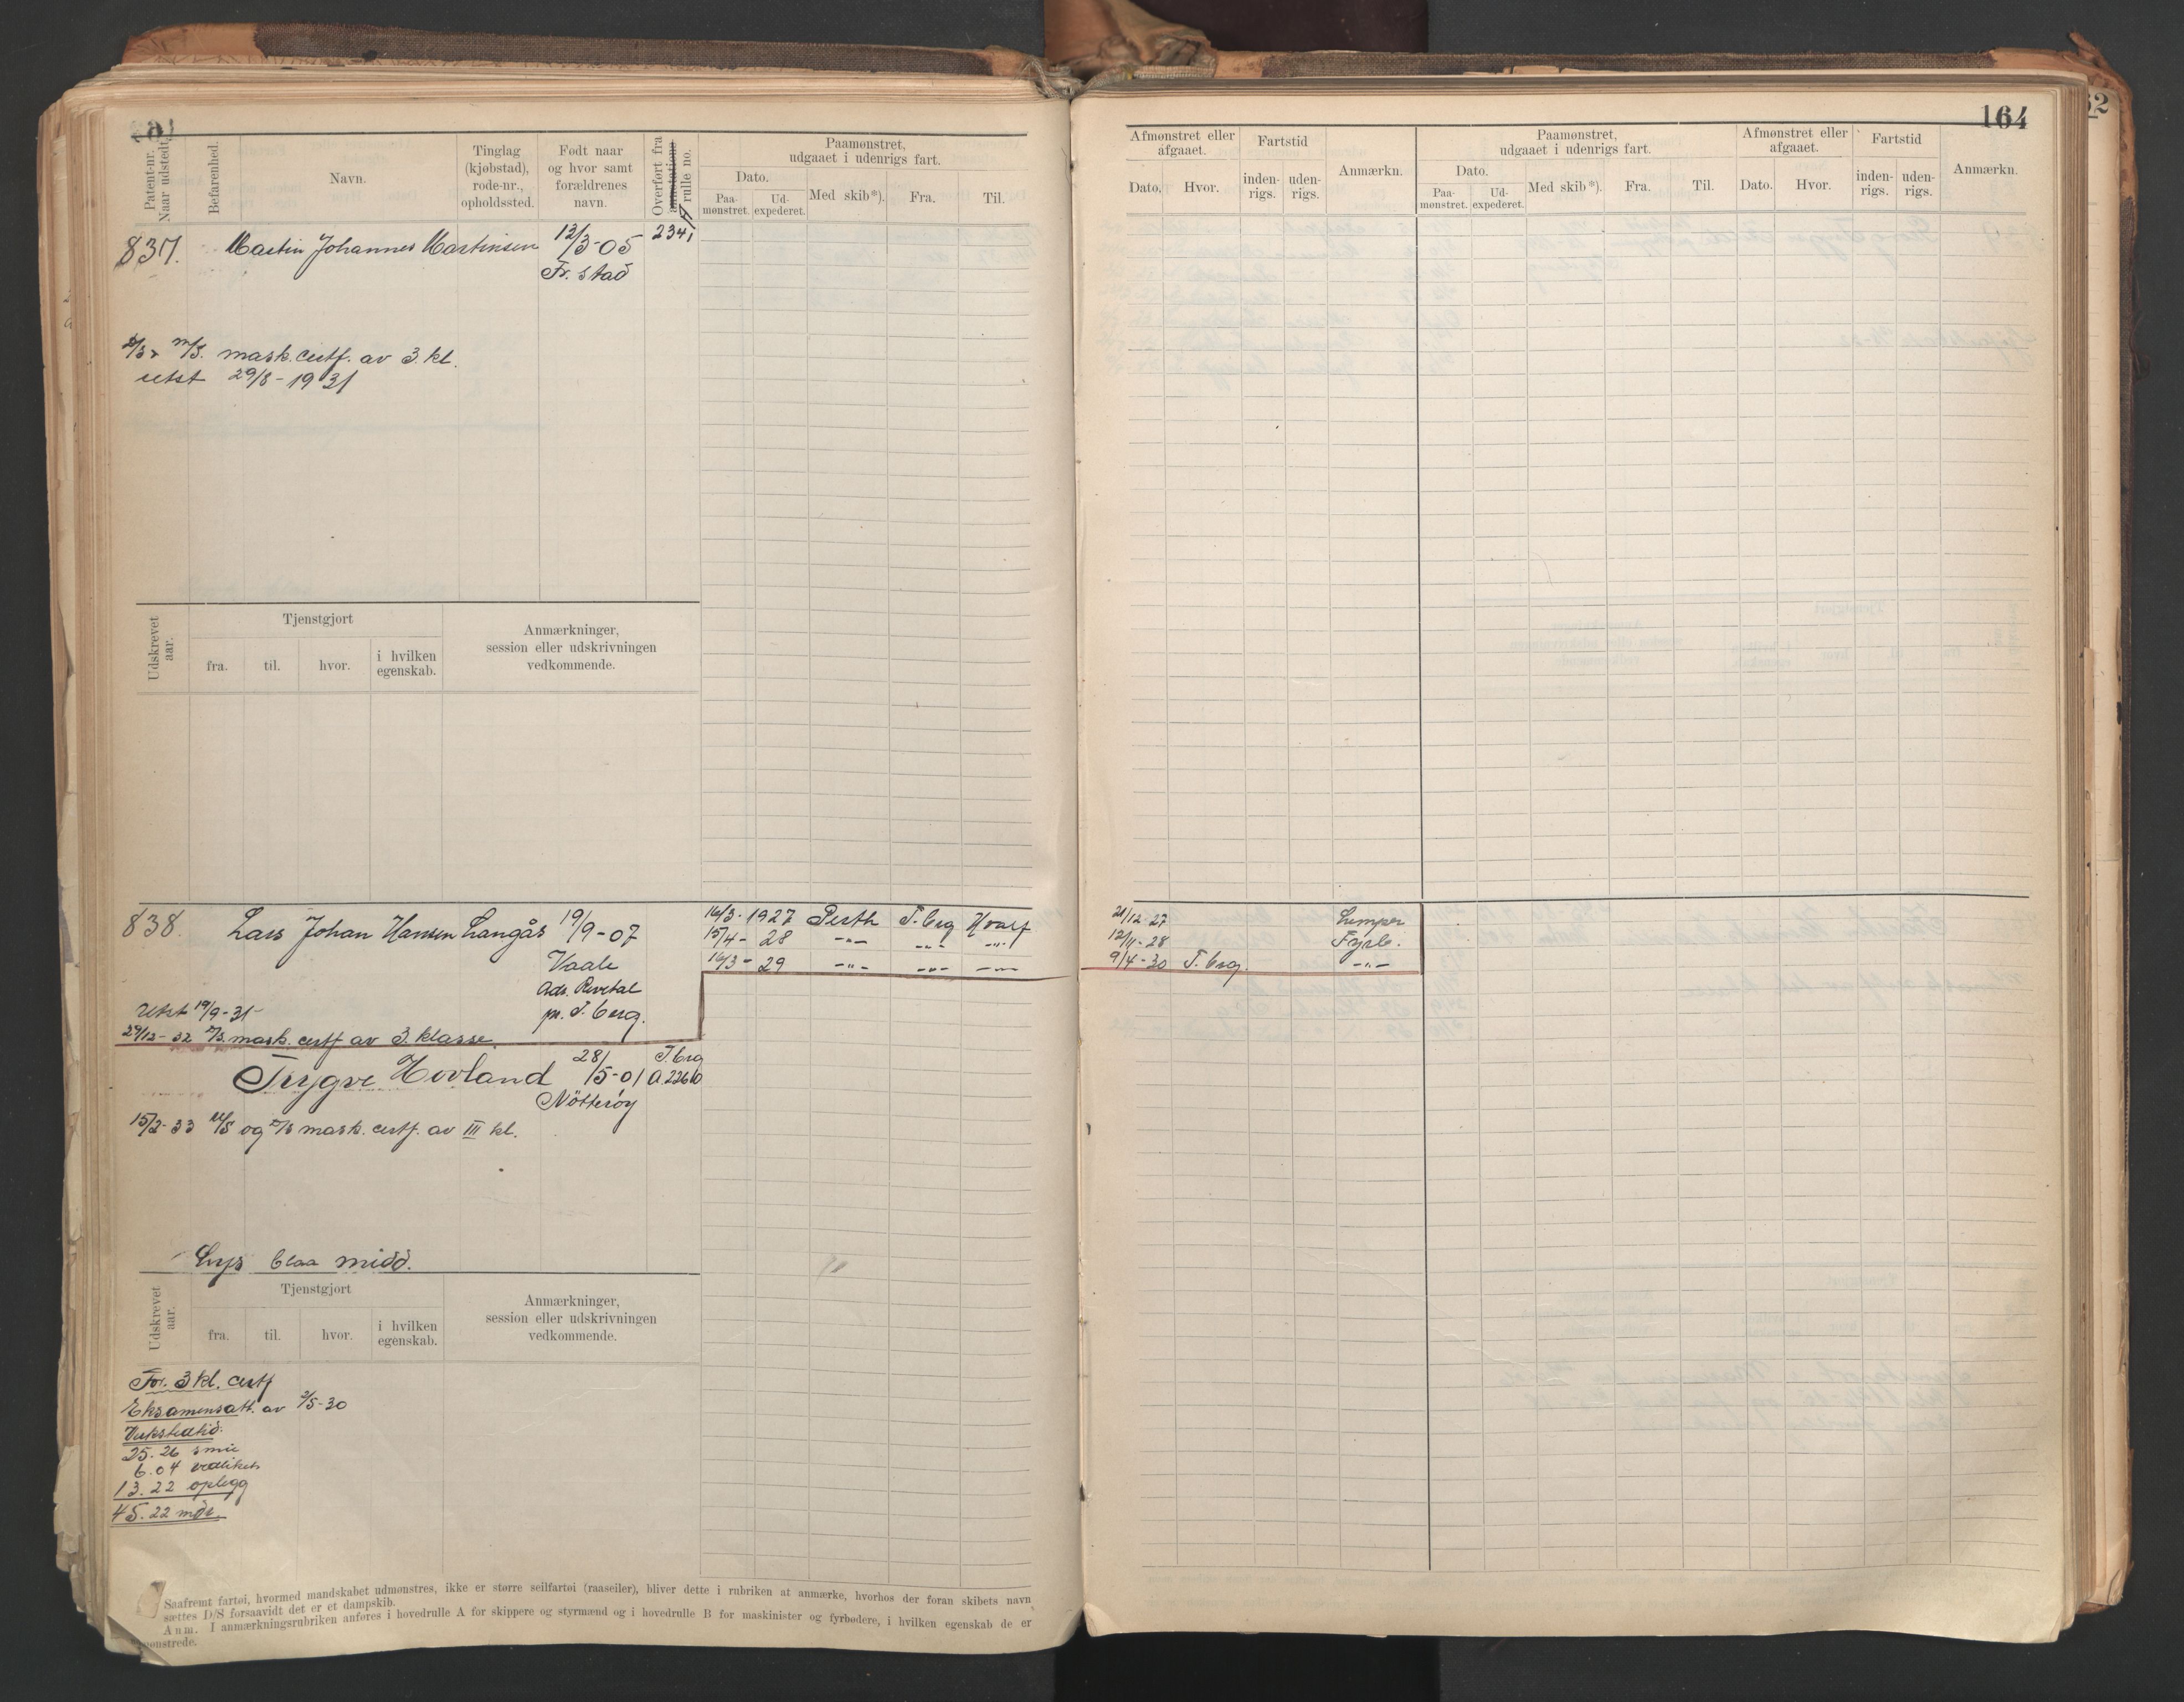 164
Patent-nr. Naar udstedt.
Befarenhed.
Navn.
Tinglag (kjøbstad), rode-nr., opholdssted.
Født naar og hvor samt forældrenes navn.
Overført fra annotations rulle no.
Paamønstret, udgaaet i udenrigs fart.
Dato.
Paa-mønstret.
Ud-expederet.
Med skib*).
Fra.
Til.
Afmønstret eller afgaaet.
Dato.
Hvor.
Fartstid
inden-rigs.
uden-rigs.
Anmærkn.
Paamønstret, udgaaet i udenrigs fart.
Dato.
Paa-mønstret.
Ud-expederet.
Med skib*).
Fra.
Til.
Afmønstret eller afgaaet.
Dato.
Hvor.
Fartstid
inden-rigs.
uden-rigs.
Anmærkn.
837. Martin Johannes Martinsen 12/3-05 2341
Fr.stad
m/s. mask.certf. av 3. kl.
utst 29/8-1931
Udskrevet aar.
Tjenstgjort
fra.
til.
hvor.
i hvilken egenskab.
Anmærkninger, session eller udskrivningen vedkommende.
838. Lars Johan Hansen Langås 19/9-07
Vaale
Ads. Revetal
pr. T.berg.
16/3-1927 Perth T.brg Hvalf 21/12-27 Lemper
15/4-28 -"- -"- -"- 12/11-28 Fyrb.
16/3-29 -"- -"- -"- 9/4-30 T.brg. -"-
Utst 19/9-31-
29/12-32 m/s. mask. certf av 3. klasse.
Trygve Hovland 28/5-01 T.brg A.2260
Nötteröy
15/2-33 m/s og d/s mask. certf. av III kl.
Lys blaa midd.
Udskrevet aar.
Tjenstgjort
fra.
til.
hvor.
i hvilken egenskab.
Anmærkninger, session eller udskrivningen vedkommende.
For. 3 kl. certf
Eksamensatt. av 3/5-30
Verkstedtid:
25.26 smie
6.04
13.22 oplegg
45.22 mdr.
Saafremt fartøi, hvormed mandskabet udmønstres, ikke er større seilfartøi (raaseiler), bliver dette i rubriken at anmærke, hvorhos der foran skibets navn
sættes D/S forsaavidt det er et dampskib.
Anm. I anmærkningsrubriken anføres i hovedrulle A for skippere og styrmænd og i hovedrulle B for maskinister og fyrbødere, i hvilken egenskab de er
mønstrede.